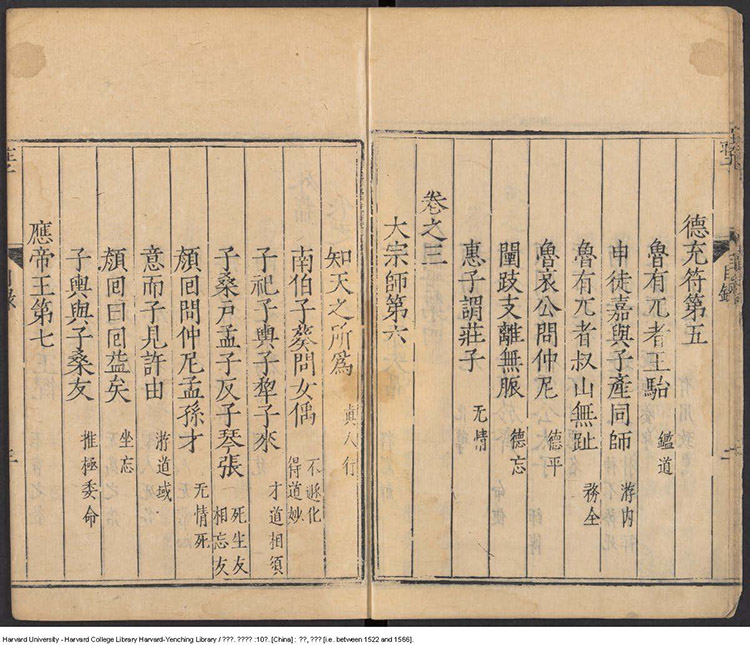 德充符第五
魯有兀者王駘 鑑道
申徒嘉與子產同師 游内
魯有兀者叔山無趾 務全
魯哀公問仲尼 德平
闉跂支離無脤 德忘
惠子謂莊子 无情
卷之三
大宗師第六
知天之所爲 真人行
南伯子葵問女偊 不遯化 得道妙
子祀子輿子犂子來 才道相須
子桑戸孟子反子琴張 一死生友 相忘友
顔回問仲尼孟孫才 无情死
意而子見許由 游道域
顔回曰回益矣 坐忘
子輿與子桑友 推極委命
應帝王第七
Harvard University - Harvard College Library Harvard-Yenching Library / ???. ???? :10?. [China] : ??, ??? [i.e. between 1522 and 1566].